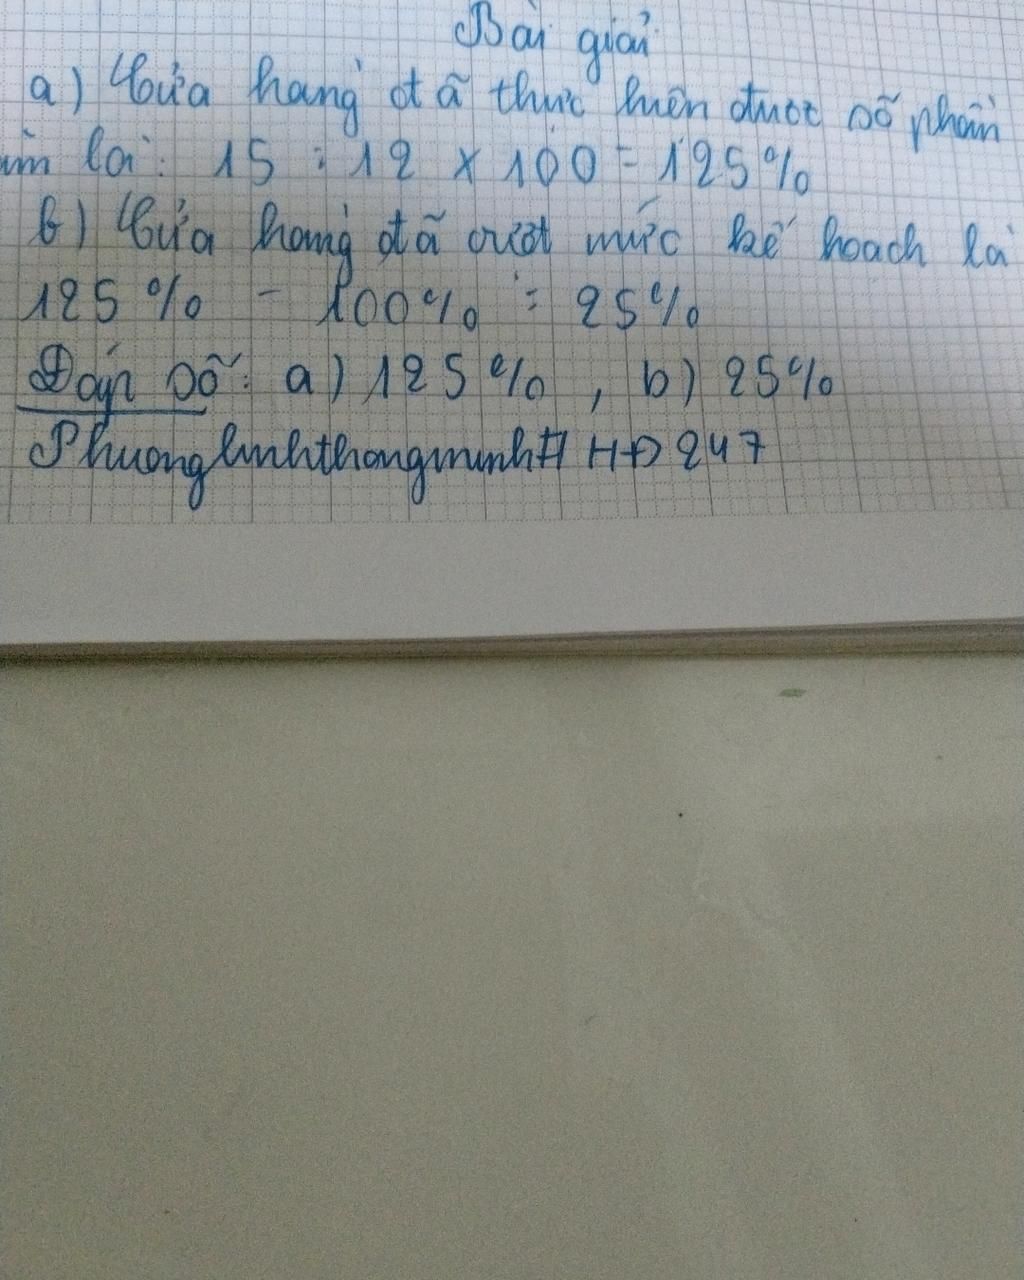 Bài giải
a) Cửa hàng đã thực hiện được số phần
ăm là: 15 : 12 x 100 = 125%
b) Cửa hàng đã vượt mức kế hoạch là
125% - 100% = 25%
Đáp số: a) 125%, b) 25%
Phuonglinhthongminh# HĐ247